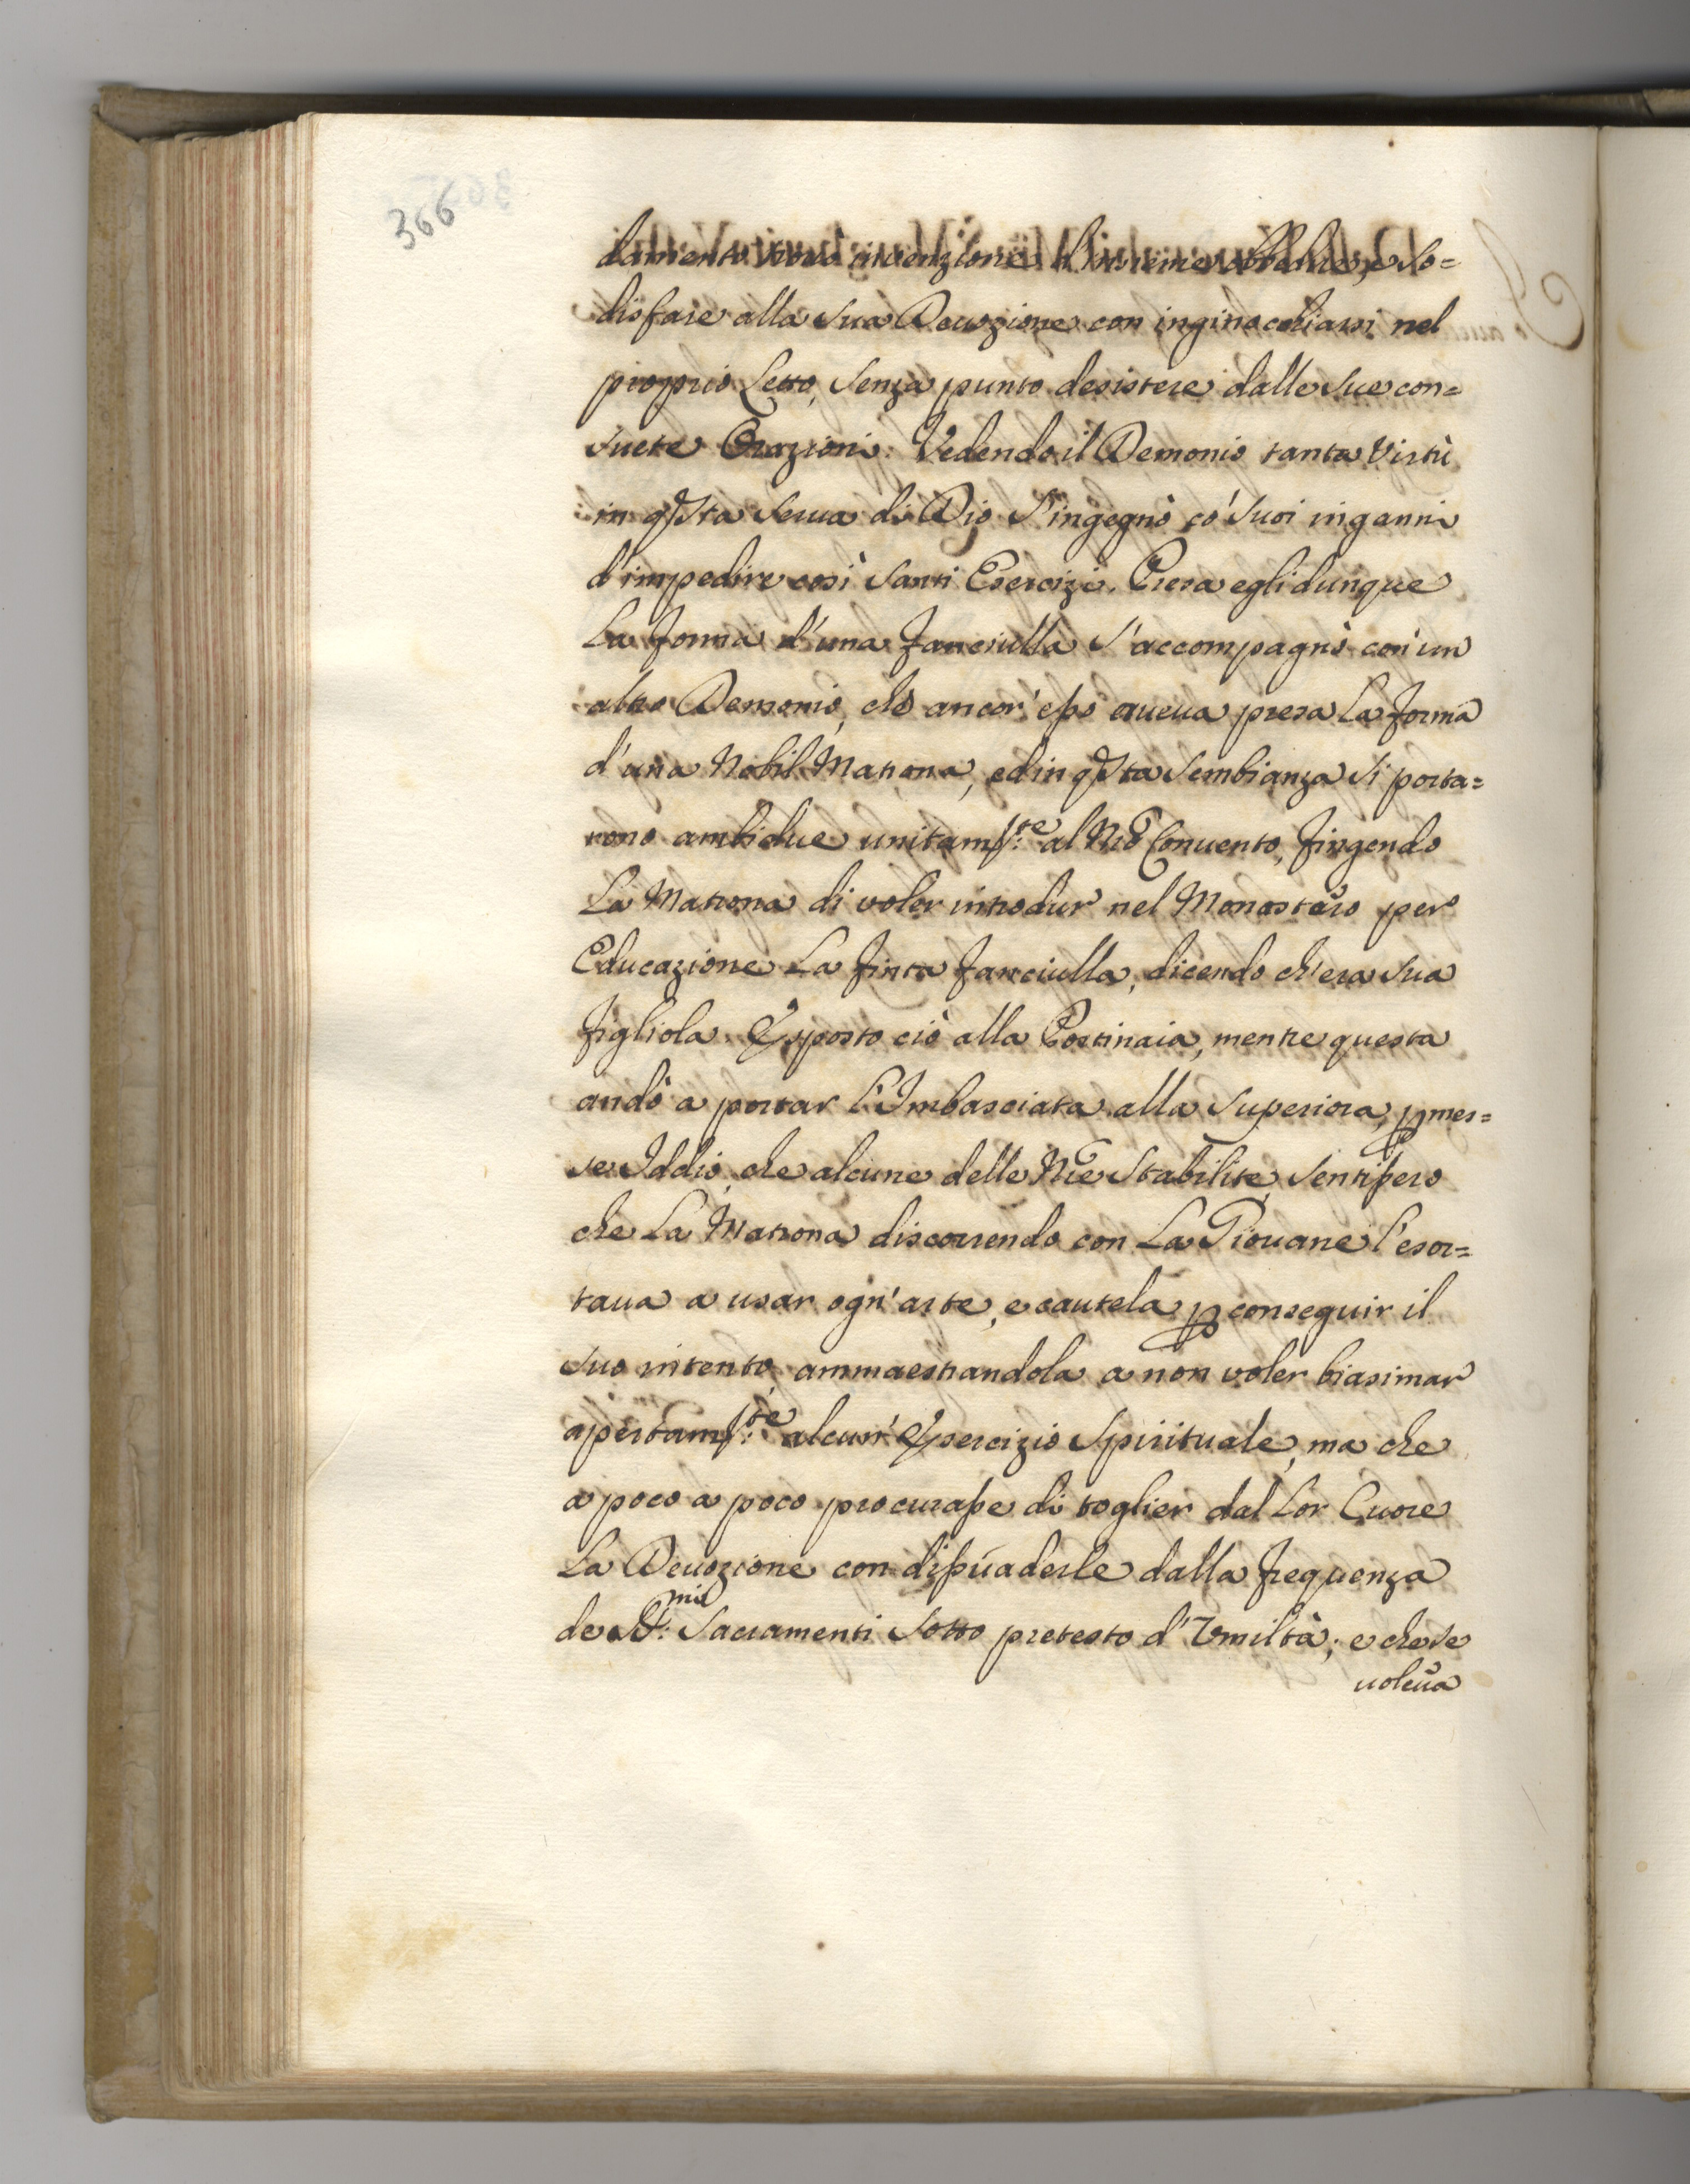 366
damento trovò invenzione d'insieme obbedire, e so=
disfare alla sua Devozione con inginocchiarsi nel
proprio Letto, senza punto desistere dalle sue con=
suete Orazioni. Vedendo il Demonio tanta Virtù
in qsta serua di Dio s'ingegnò co' suoi inganni
d'impedire così santi Esercizi. Presa egli dunque
La forma d'una fanciulla s'accompagnò con un
altro Demonio, che ancor' esso aueua presa La forma
d'una Nobil Matrona, ed in qsta sembianza si porta=
rono ambidue unitamte: al Nro Conuento, fingendo
La Matrona di voler introdur nel Monastero per
Educazione La finta fanciulla, dicendo ch'era sua
figliola. Esposto ciò alla Portinaia, mentre questa
andò a portar L'Imbasciata alla Superiora, pmes=
se Iddio, che alcune delle Nre Stabilite, sentissero
che La Matrona discorrendo con La Giouane l'esor=
taua a usar ogn'arte, e cautela p conseguir il
suo intento, ammaestrandola a non voler biasimar
apertamte: alcun' Esercizio Spirituale, ma che
a poco a poco procurasse di toglier dal Lor Cuore
La Deuozione con dissuaderle dalla frequenza
de SSmi: Sacramenti sotto pretesto d'Vmiltà; e che se
uoleua